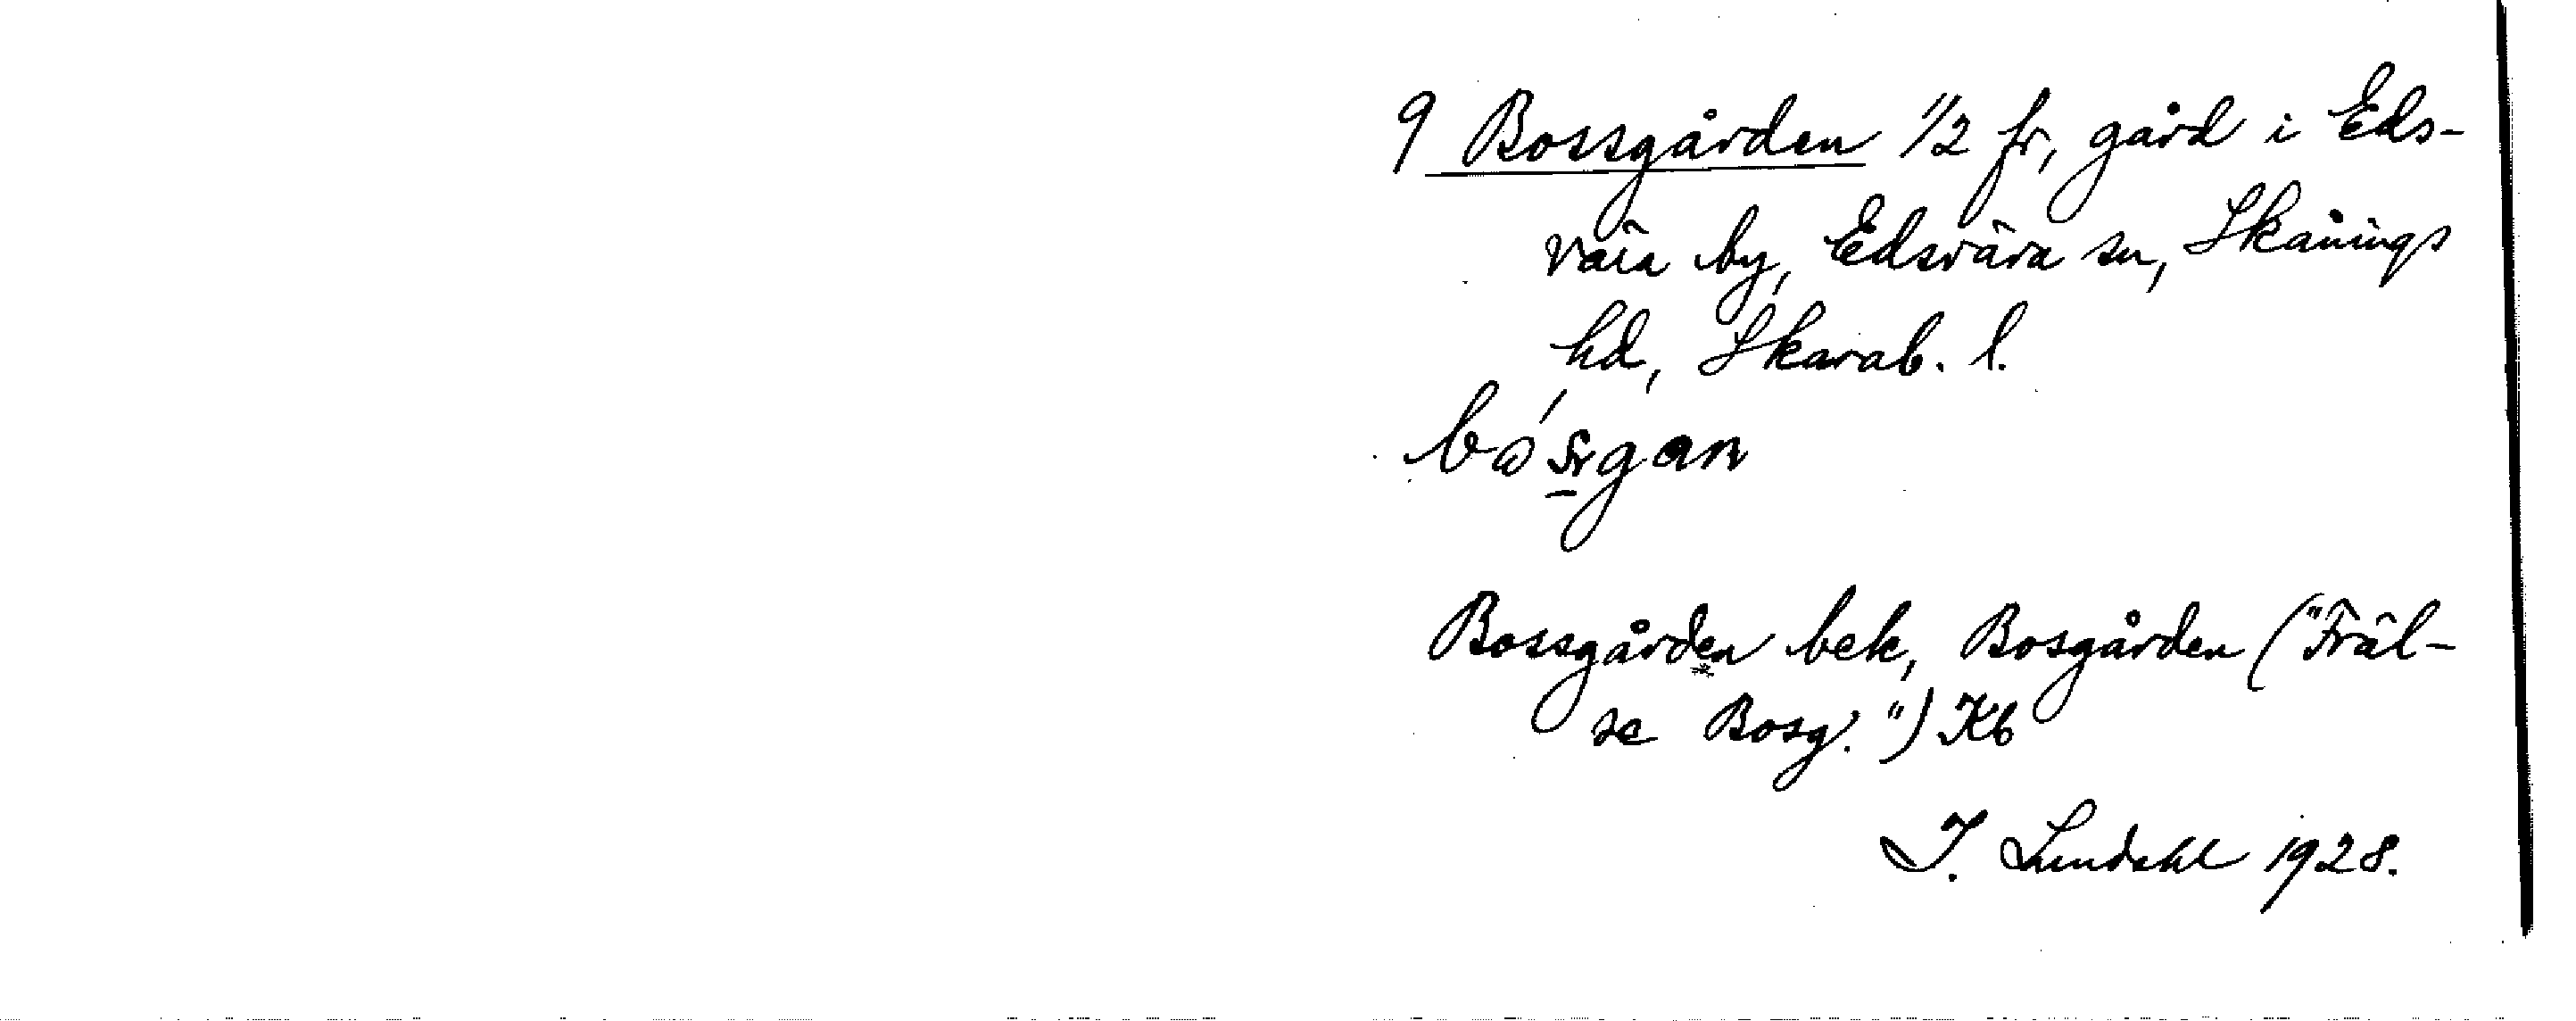 9 Bossgården 1/2 fr, gård i Eds-
vära by, Edsvära sn, Skånings
hd, Skarab. l.
Bossgården bek, Bosgården ("Fräl-
se Bosg.") Kb
J. Lindahl 1928.